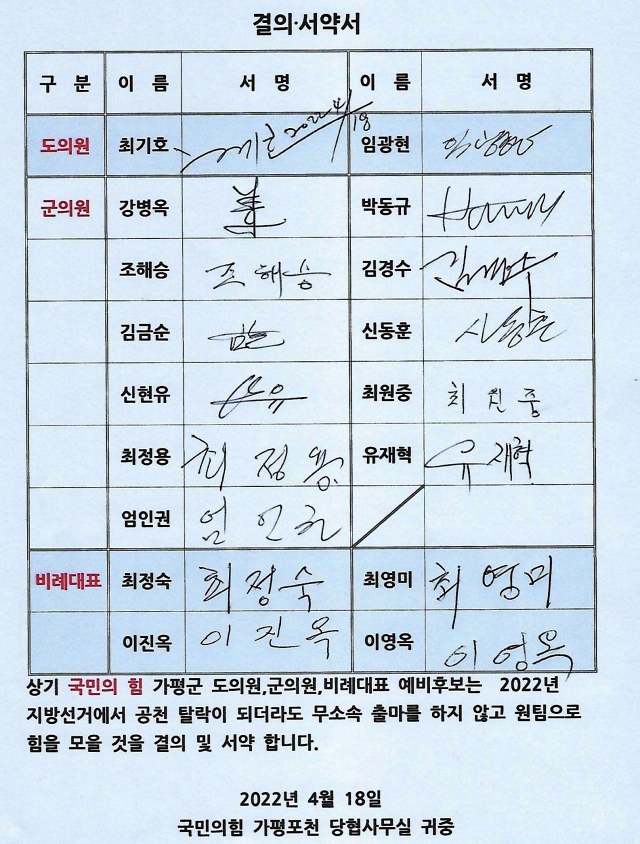 결의·서약서
구 분 이 름 서 명 이 름 서 명
도의원 최기호 2022 4/18 임광현
군의원 강병옥 박동규
조해승 조해승 김경수
김금순 신동훈 신동훈
신현유 최원중 최원중
최정용 최정용 유재혁 유재혁
엄인권 엄인권
비례대표 최정숙 최정숙 최영미 최영미
이진옥 이진옥 이영옥 이영옥
상기 국민의 힘 가평군 도의원,군의원,비례대표 예비후보는 2022년
지방선거에서 공천 탈락이 되더라도 무소속 출마를 하지 않고 원팀으로
힘을 모을 것을 결의 및 서약 합니다.
2022년 4월 18일
국민의힘 가평포천 당협사무실 귀중